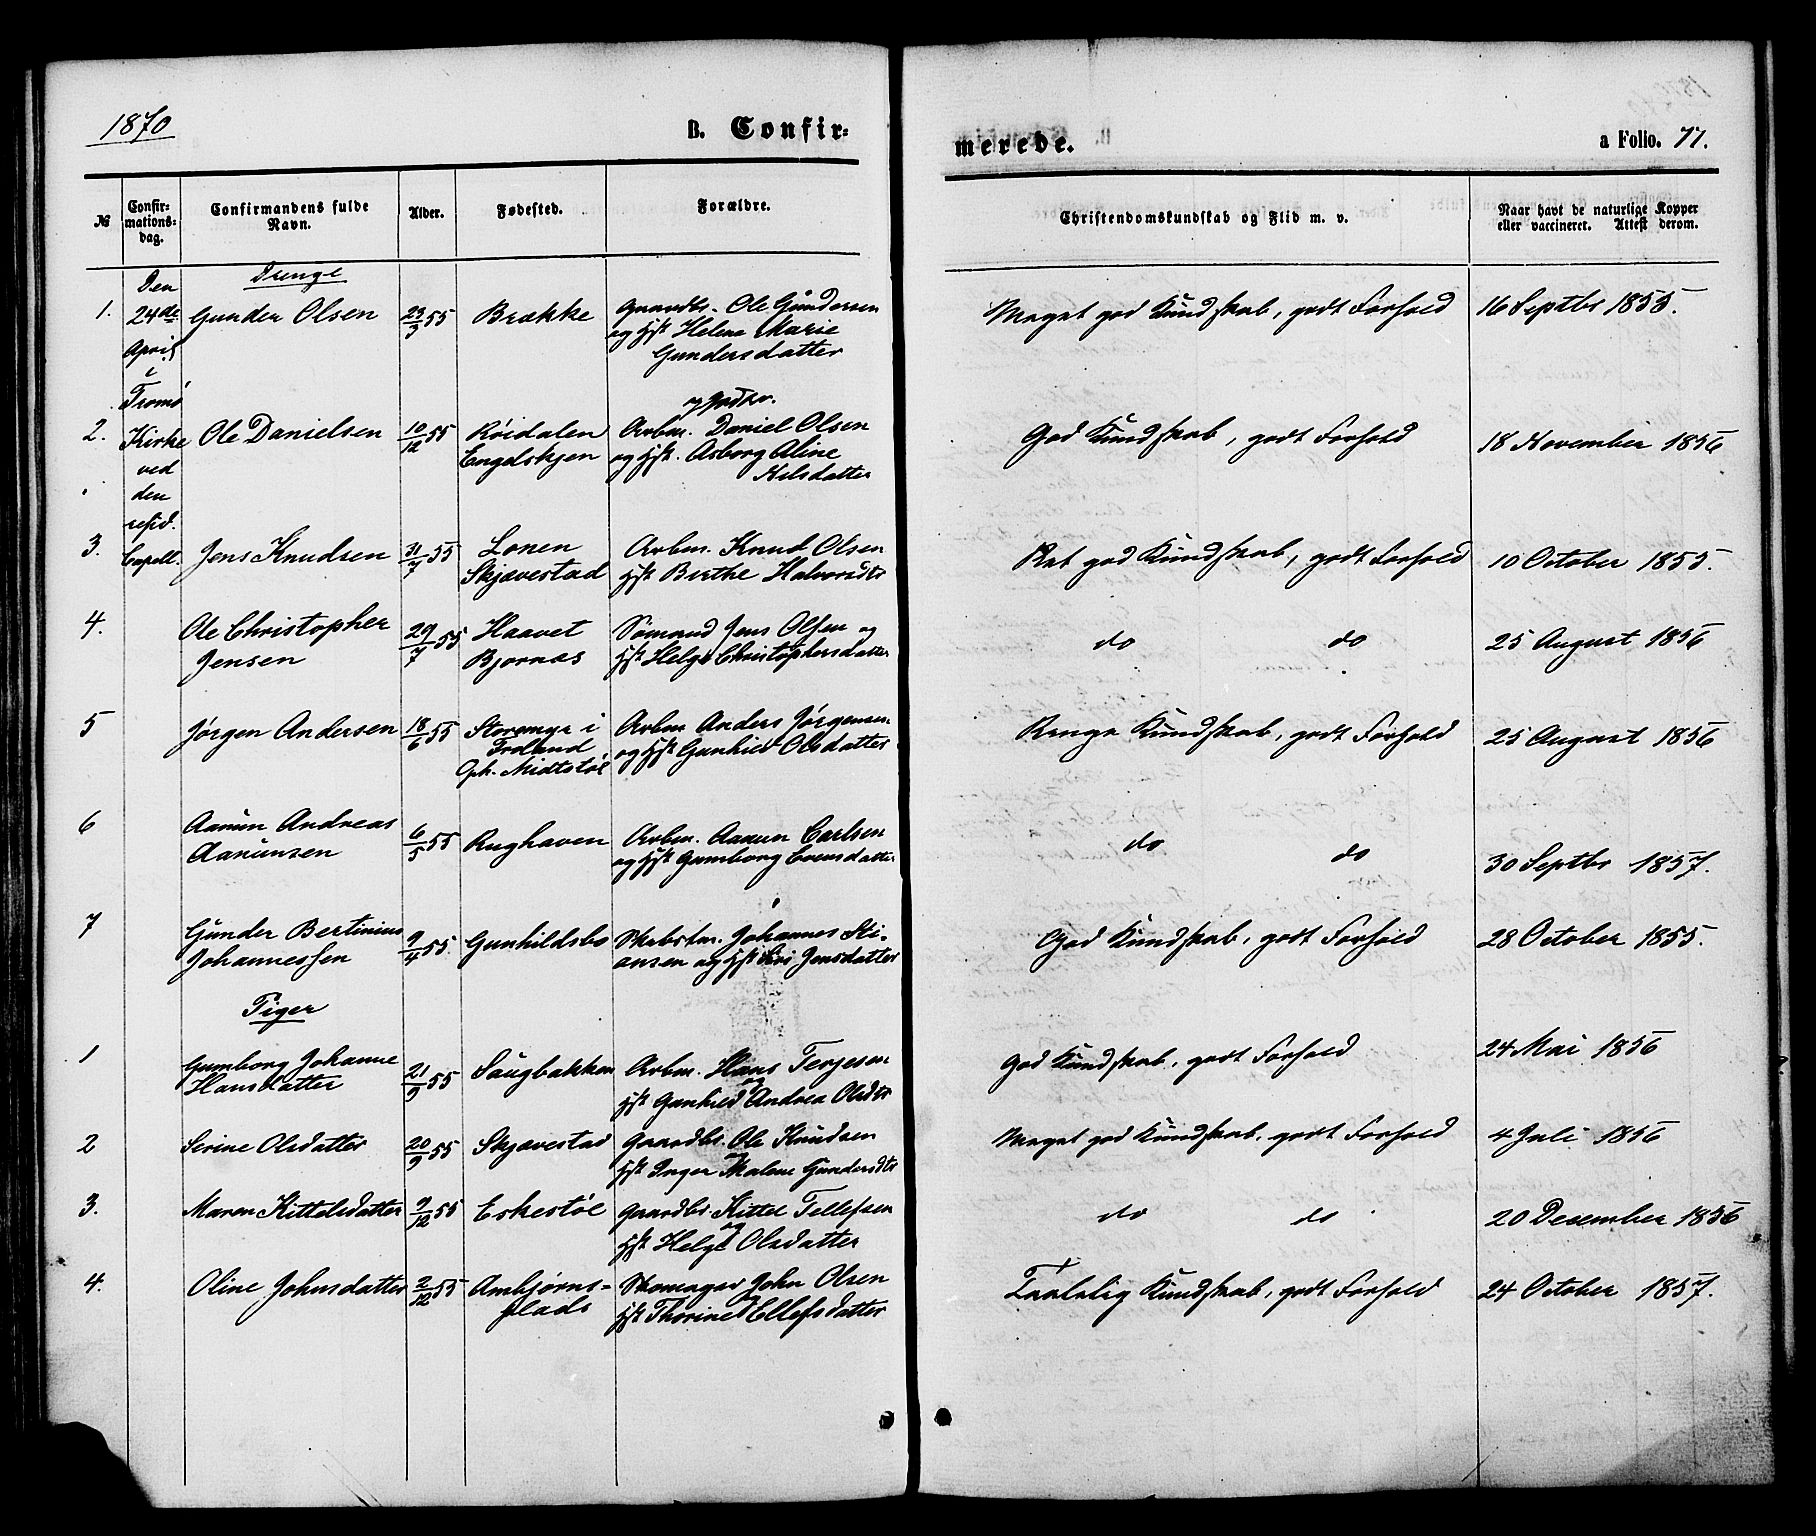 1870
B. Confir=
merede.
a Folio. 77.
№
Confir=
mations=
dag.
Confirmandens fulde
Navn.
Alder.
Fødested.
Forældre.
Christendomskundskab og Flid m. v.
Naar havt de naturlige Kopper
eller vaccineret. Attest derom.
Den
24de
April
i
Tromø
Kirke
ved
den
resid.
Capell.
Drenge
1. Gunder Olsen 23/3 55 Brække
Gaardbr. Ole Gundersen
og Hst Helene Marie
Gundersdatter
Meget god Kundskab, godt Forhold 16 Septbr 1855.
2. Ole Danielsen 10/12 55
Røidalen
Engelskjen
Arbm. Daniel Olsen
og Hst. Asborg Aline
Nilsdatter
God Kundskab, godt Forhold 18 November 1856
3. Jens Knudsen 31/7 55
Lonen
Skjævestad
Arbm. Knud Olsen
Hst Birthe Halvorsdtr
Ret god Kundskab, godt Forhold 10 October 1855.
4. Ole Christopher
Jensen
29/7 55
Haavet
Bjornæs
Sømand Jens Olsen og
Hst Helge Christophersdatter
do do 25 August 1856
5 Jørgen Andersen 18/6 55
Storemyr i
Froland
Oph. Midtstøl
Arbm Anders Jørgensen
og Hst Gunhild Olsdatter
Ringe Kundskab, godt Forhold 25 August 1856
6 Aanun Andreas
Aanunsen
6/5 55 Rughaven
Arbm. Aanun Carlsen
og Hst Gumborg Evensdatter
do do 30 Septbr 1857.
7 Gunder Bertinius
Johannessen
9/4 55. Gunhildsbo
Skibstm. Johannes Sti-
ansen og Hst Siri Jensdatter
God Kundskab, godt Forhold 28 October 1855.
Piger
1 Gumborg Johanne
Hansdatter
21/9 55 Saugbakken
Arbm. Hans Terjesen
og
Hst Gunhild Andrea Olsdtr
God Kundskab, godt Forhold 24 Mai 1856
2 Serine Olsdatter 20/9 55 Skjævestad
Gaardbr. Ole Knudsen
Hst Inger Malene Gundersdtr
Meget god Kundskab, godt Forhold 4 Juli 1856
3. Maren Kittelsdatter 9/12 55 Eskestøl
Gaardbr. Kittel Tellefsen
og
Hst Helge Olsdatter
do do 20 Desember 1856
4. Oline Johnsdatter 2/12 55
Ambjørns-
plads
Skomager John Olsen
og
Hst Thorine Ellefsdatter
Taalelig Kundskab, godt Forhold 24 October 1857.